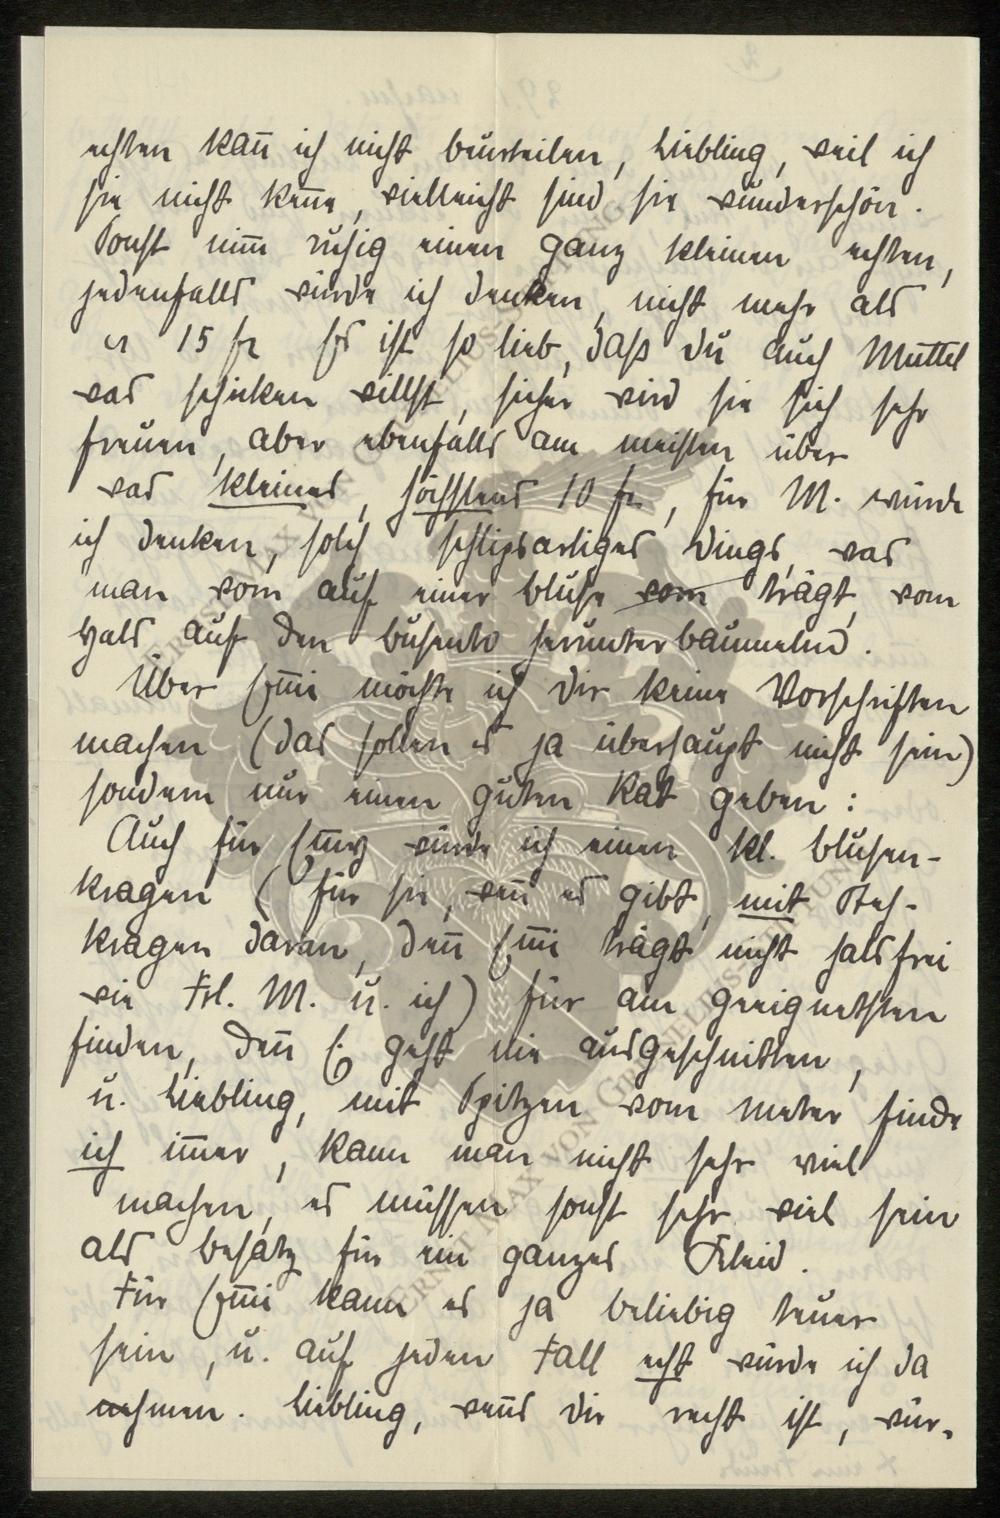 echten kan̄ ich nicht beurteilen, Liebling, weil ich
sie nicht ken̄e, vielleicht sind sie wunderschön.
Sonst nim̄ ruhig einen ganz kleinen echten,
jedenfalls würde ich denken, nicht mehr als
15 fr Es ist so lieb, daß du auch Muttel
was schicken willst, sicher wird sie sich sehr
freuen, aber ebenfalls am meisten über
was kleines, höchstens 10 fr., für M. würde
ich denken, solch schlipsartiges Dings, was
man vorn auf einer Bluse vorn trägt, vom
Hals auf den Busento herunterbaumelnd.
Über Em̄i möchte ich dir keine Vorschriften
machen (das sollen es ja überhaupt nicht sein)
sondern nur einen guten Rat geben:
Auch für Em̄y würde ich einen kl. Blusen-
kragen (für sie, wen̄ es gibt, mit Steh-
kragen daran, den̄ Em̄i trägt nicht halsfrei
wie Frl. M. u. ich) für am geeignetsten
finden, den̄ E. geht nie ausgeschnitten,
u. Liebling, mit Spitzen vom Meter finde
ich im̄er, kann man nicht sehr viel
machen, es müssen sonst sehr viel sein
als Besatz für ein ganzes Kleid.
Für Em̄i kann es ja beliebig teuer
sein, u. auf jeden Fall echt würde ich da
nehmen. Liebling, wen̄s dir recht ist, wür-